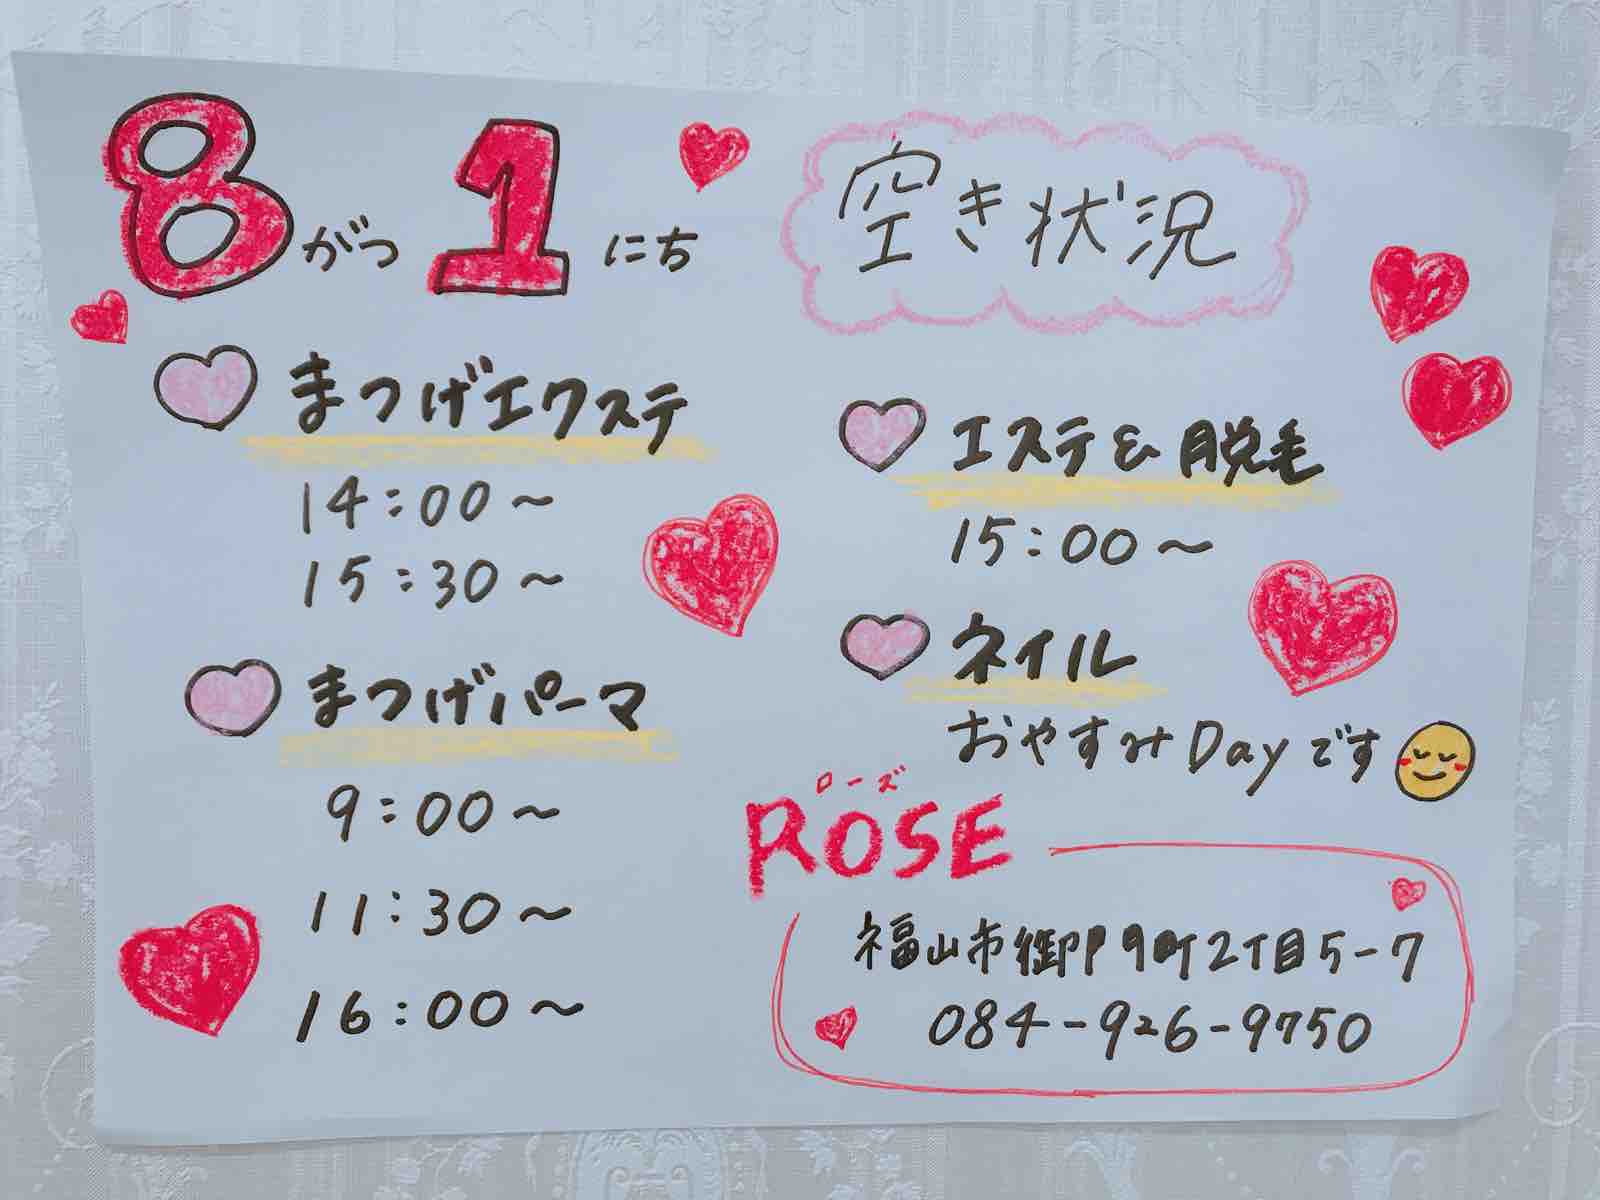 8がつ1にち
空き状況
まつげエクステ
14:00～
15:30～
まつげパーマ
9:00～
11:30～
16:00～
エステ&脱毛
15:00～
ネイル
おやすみDayです
ローズ
ROSE
福山市御門町2丁目5-7
084-926-9750